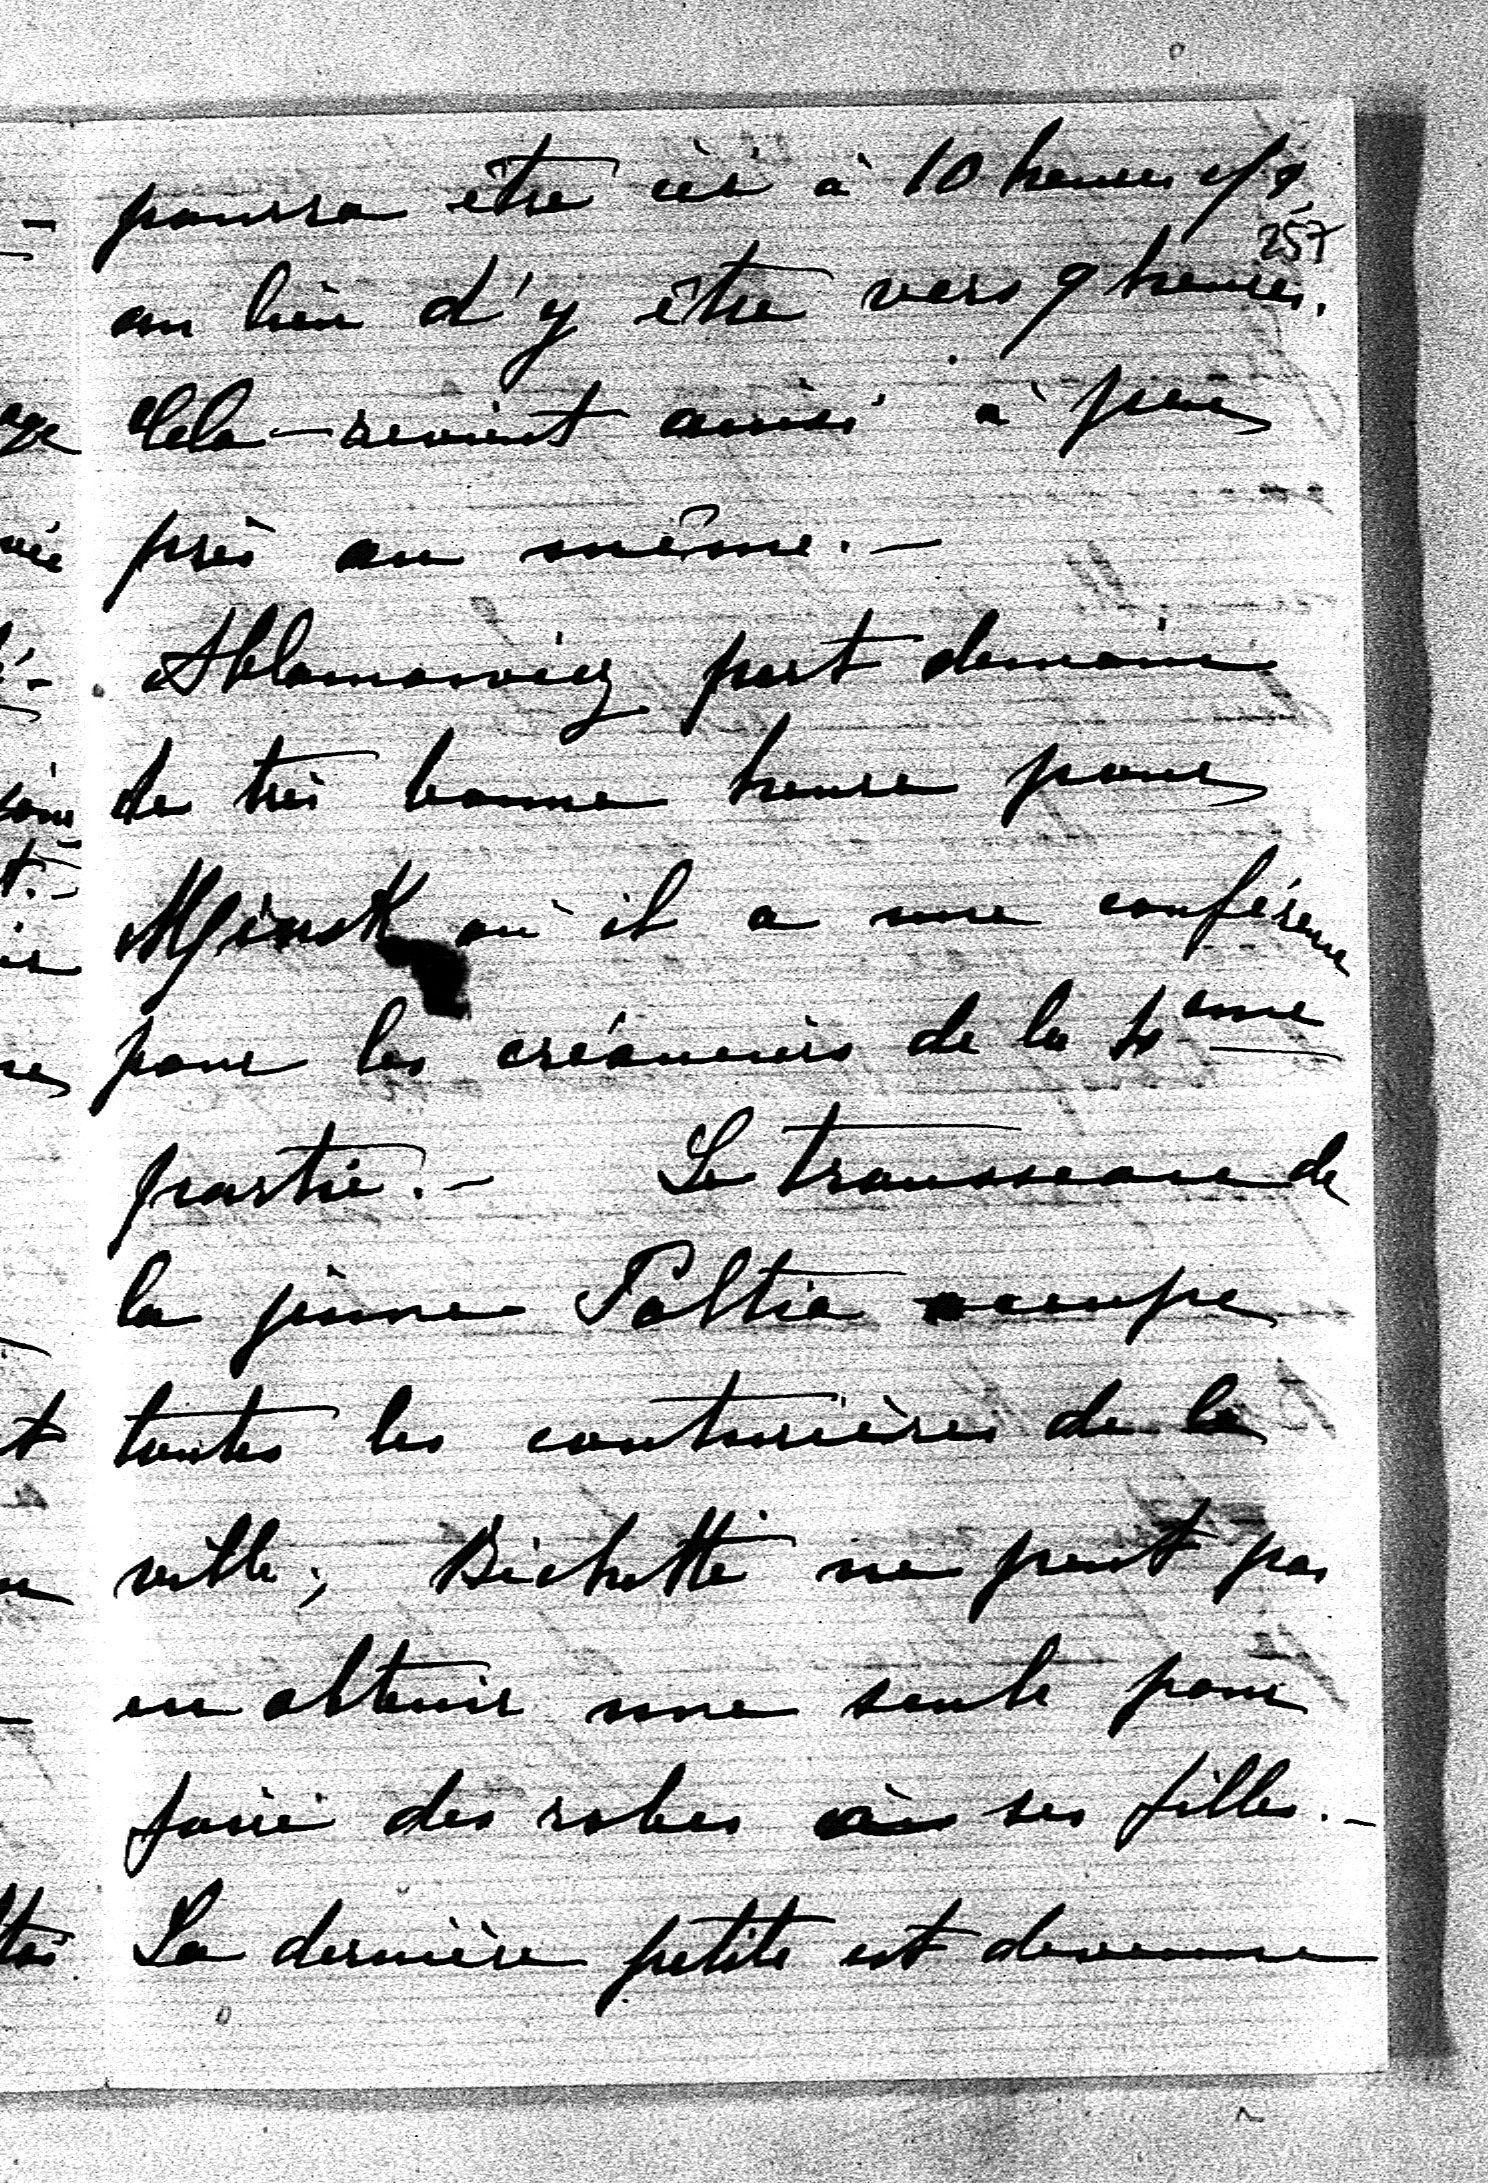 pourra être ici à 10 heures 1/2
257
ou bien d'y être vers 9 heures.
Cela revient ainsi à peu
près au même. —
Ablamowicz part demain
de très bonne heure pour
Minsk où il a une conférence
pour les créanciers de la 4ème
partie. — Le trousseau de
la jeune Poltia occupe
toutes les couturières de la
ville; Bichette ne peut pas
en obtenir une seule pour
faire des robes à ses filles. —
La dernière petite est devenue